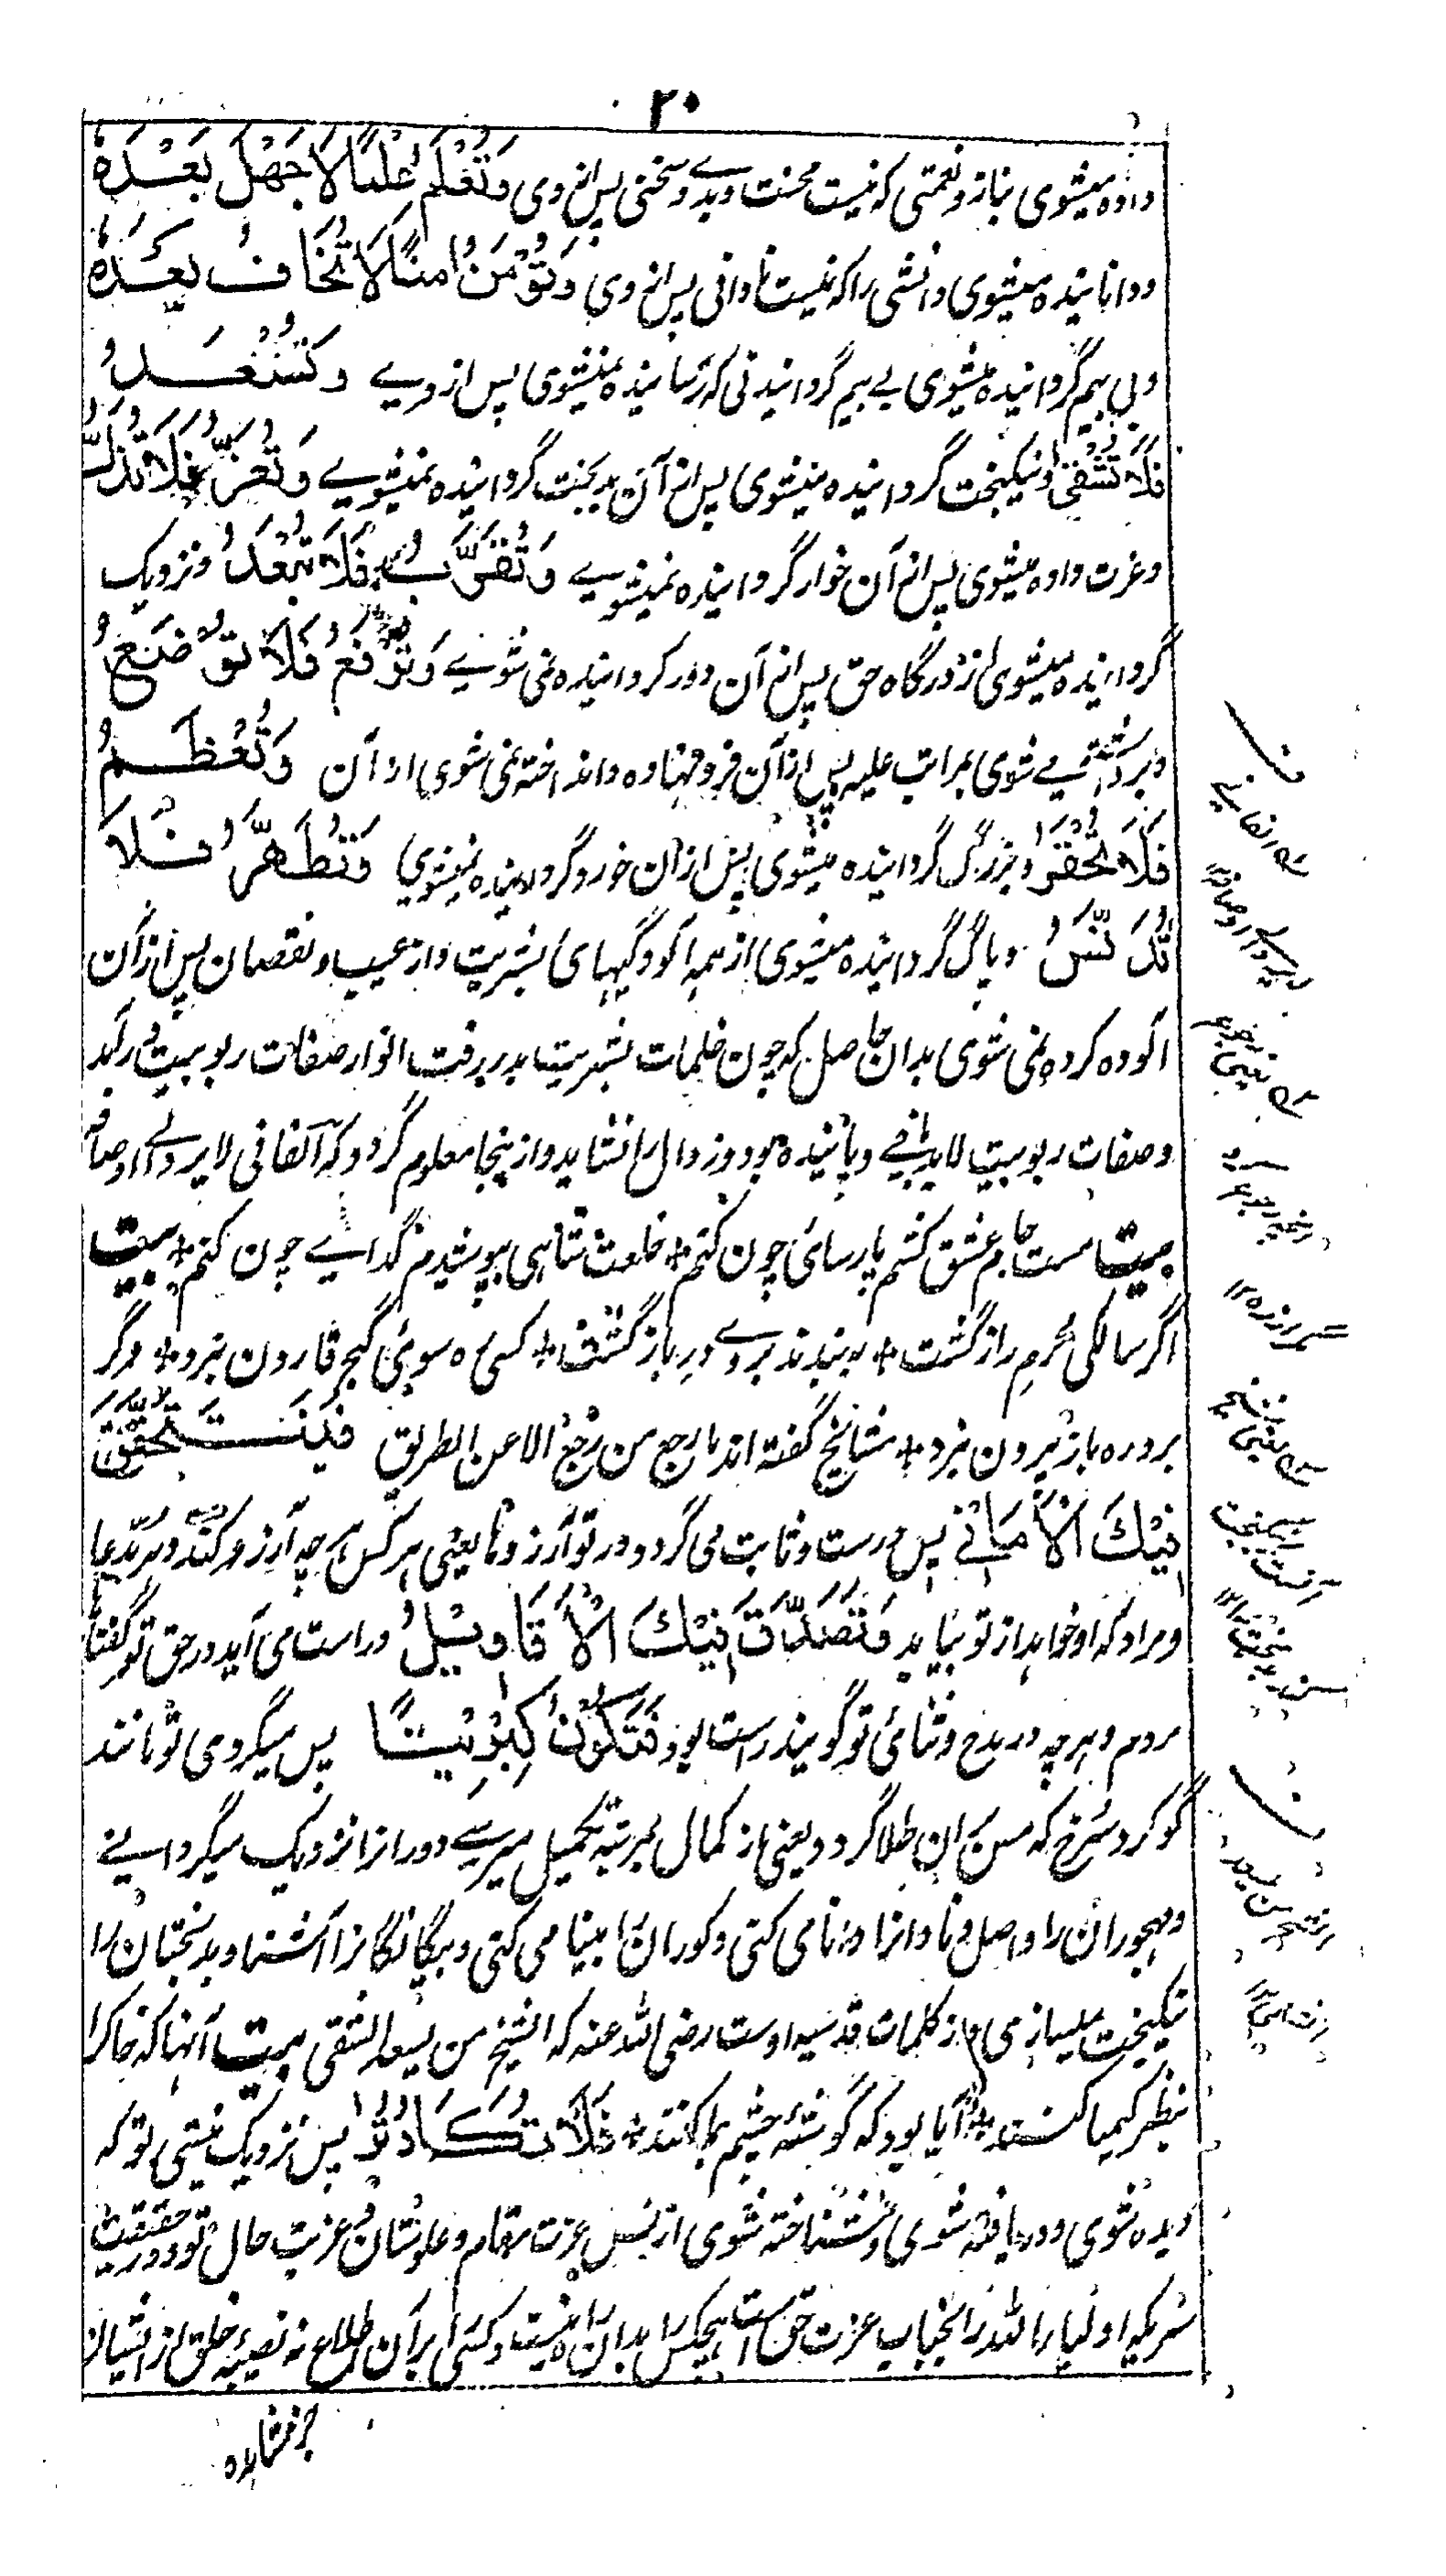 ۲۰
داده میشوی بناز و نعمتی که نیست محنت و بدے و سختی پس از وی وَتُعَلَّمُ عِلْمًا لَا جَهْلَ بَعْدَهٗ
و دانانیده میشوی دانشی را که نیست نادانی پس از وی وَتُؤْمَنُ اَمْنًا لَا تُخَافُ بَعْدَهٗ
و بی بیم گردانیده میشوی بے بیم گردانیدنی که ترسانیده نمیشوی پس از وے وَتُسْعَدُ
فَلَا تُشْقٰی و نیکبخت گردانیده میشوی پس از آن بدبخت گردانیده نمیشوے وَتُعَزُّ فَلَا تُذَلُّ
و عزت داده میشوی پس از آن خوار گردانیده نمیشوے وَتُقَرَّبُ فَلَا تُبْعَدُ و نزدیک
گردانیده میشوی از درگاه حق پس از آن دور کردانیده نمی شوے وَتُرْفَعُ فَلَا تُوْضَعُ
و برداشته مے شوی بمراتب علیه پس ازان فرو نهاده و انداخته نمی شوی از آن وَتُعَظَّمُ
فَلَا تُحَقَّرُ و بزرگ گردانیده میشوی پس ازان خورد گردانیده نمیشوی وَتُطَهَّرُ فَلَا
تُدَنَّسُ و پاک گردانیده میشوی از همه آلودگیهای بشریت و از عیب و نقصان پس ازان
آلوده کرده نمی شوی بدان حاصل که چون ظلمات بشریت بدر رفت انوار صفات ربوبیت درآمد
و صفات ربوبیت لابد باقی و پاینده بود و زوال را نشاید و از ینجا معلوم گردد که الفانی لا یرد الے اوصافه
بیت مست جام عشق گشتم پارسائی چون کنم + خلعت شاهی بپوشیدم گداے چون کنم + بیت
اگر سالکی محرم راز گشت + به بندند بروے در بازگشت + کسی ره سوئی گنج قارون نبرد + و گر
برد ره باز بیرون نبرد + مشایخ گفته اند ما رجع من رجع الا عن الطریق فَیَتَحَقَّقُ
فِیْكَ الْاَمَانِیْ پس درست و ثابت می گردد در تو آرزوها یعنی هر کس هر چه آرزو کند و هر مدعا
و مراد که او خواهد از تو بیابد وَتَصْدُقُ فِیْكَ الْاَقَاوِیْلُ و راست می آید در حق تو گفتهای
مردم و هر چه در مدح و ثنائی تو گویند راست بود فَتَكُوْنُ كِبْرِیْتًا پس میگردی تو مانند
گوگرد سرخ که مس بران طلا گردد یعنی از کمال بمرتبۂ تکمیل میرسے دورانرا نزدیک میگردانے
و مهجوران را واصل و نادانرا دانا می کنی و کوران را بینا می کنی و بیگانگانرا آشنا و بدبختان را
نیکبخت میسازی و از کلمات قدسیه اوست رضی الله عنه که الشیخ من یسعد الشقی بیت آنها که خاک را
بنظر کیمیا کنند + آیا بود که گوشۂ چشم بما کنند + فَلَا تَكَادُ تُرٰی پس نزدیک نیستی تو که
دیده شوی و دریافته شوی و شناخته شوی از بس عزت مقام و علو شان و غربت حال تو و در حقیقت
سریکه اولیاء الله را بجناب عزت حق ست هیچکس را بدان راه نیست و کسی را بران اطلاع نه نصیبۂ خلق از ایشان
جز مشاهده